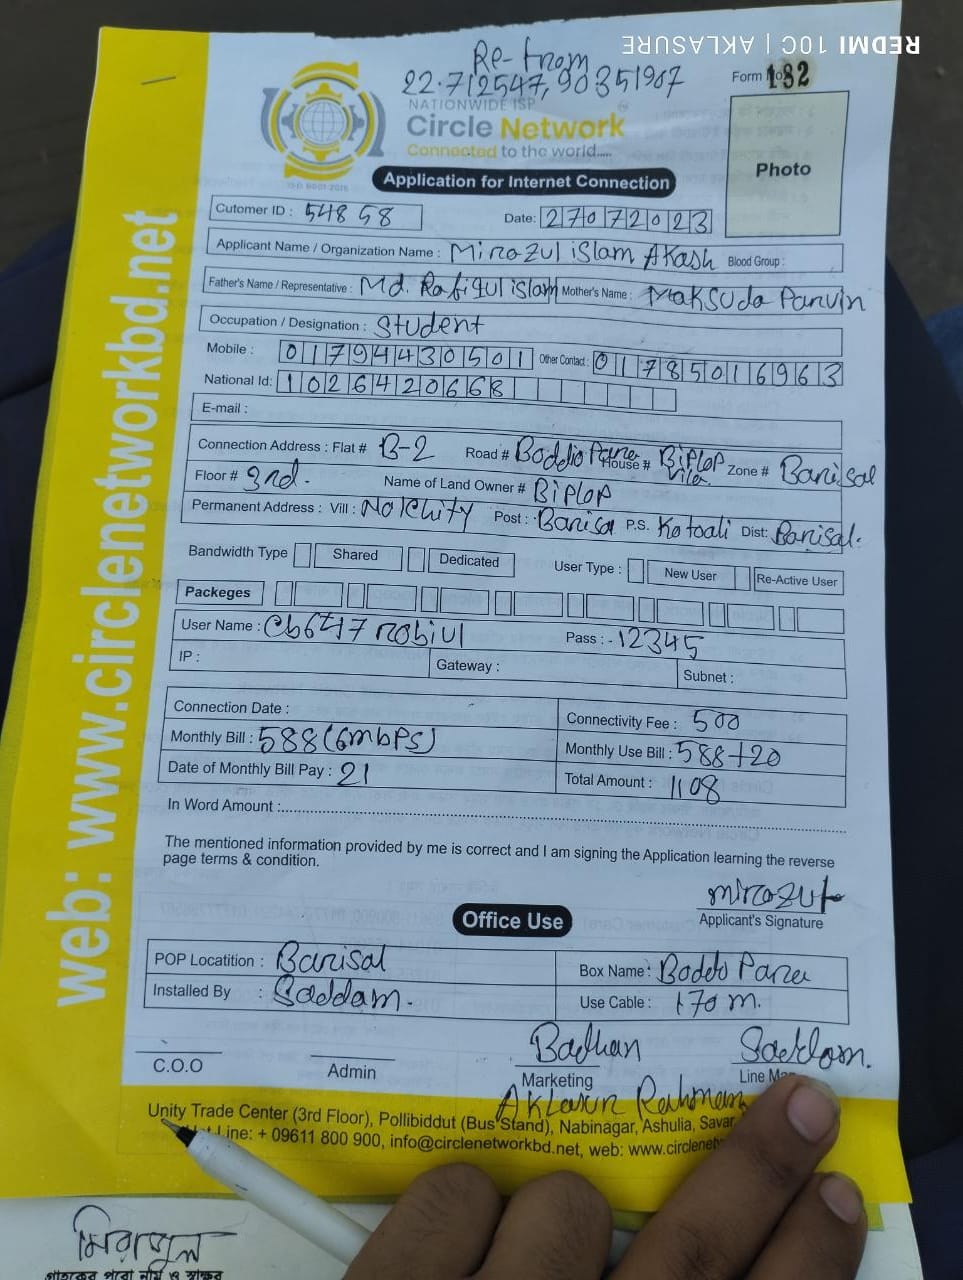 REDMI 10C | AKLASURE
Re-from
22.712547, 90351967
Form No 182
NATIONWIDE ISP
Circle Network
Connected to the world.....
ISO 9001:2015
Photo
Application for Internet Connection
Cutomer ID : 54858 Date: 27072023
Applicant Name / Organization Name : Mirazul islam Akash Blood Group :
Father's Name / Representative : Md. Rafiqul islam Mother's Name : Maksuda Parvin
Occupation / Designation : Student
Mobile : 01794430501 Other Contact : 01785016963
National Id: 1026420668
E-mail :
Connection Address : Flat # B-2 Road # Boddio Para House # Biplop Vila Zone # Barisal
Floor # 3rd. Name of Land Owner # Biplop
Permanent Address : Vill : Nolchity Post : Barisal P.S. Kotoali Dist: Barisal.
Bandwidth Type Shared Dedicated User Type : New User Re-Active User
Packeges
User Name : Pass : - 12345
IP : Gateway : Subnet :
Connection Date : Connectivity Fee : 500
Monthly Bill : 588 (6mbps) Monthly Use Bill : 588+20
Date of Monthly Bill Pay : 21 Total Amount : 1108
In Word Amount :
The mentioned information provided by me is correct and I am signing the Application learning the reverse
page terms & condition.
mirazul
Applicant's Signature
Office Use
POP Locatition : Barisal Box Name : Boddo Para
Installed By : Saddam. Use Cable : 170 m.
Badhan Saddam.
C.O.O Admin Marketing Line Man
Aklasur Rahman
Unity Trade Center (3rd Floor), Pollibiddut (Bus Stand), Nabinagar, Ashulia, Savar
Line: + 09611 800 900, info@circlenetworkbd.net, web: www.circlenet
web: www.circlenetworkbd.net
মিরাজুল
গ্রাহকের পুরো নাম ও স্বাক্ষর